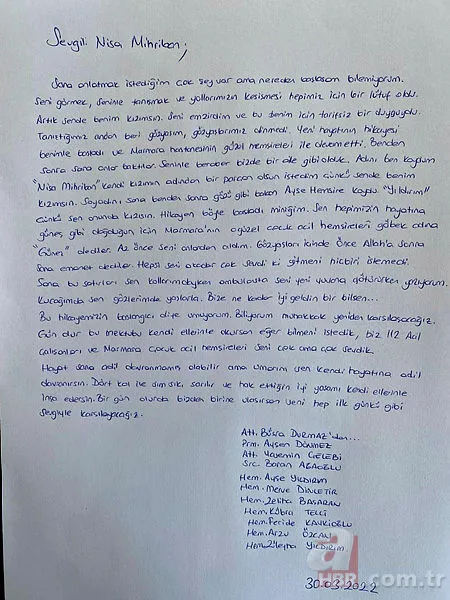 Sevgili Nisa Mihriban;
Sana anlatmak istediğim çok şey var ama nereden başlasam bilemiyorum.
Seni görmek, seninle tanışmak ve yollarımızın kesişmesi hepimiz için bir lütuf oldu.
Artık sende benim kızımsın. Seni emzirdim ve bu benim için tarifsiz bir duyguydu.
Tanıştığımız andan beri gözyaşım, gözyaşlarımız dinmedi. Yeni hayatının hikayesi
benimle başladı ve Marmara hastanesinin güzel hemşireleri ile devam etti. Benden
sonra sana onlar baktılar. Seninle beraber bizde bir aile gibi olduk. Adını ben koydum
"Nisa Mihriban" kendi kızımın adından bir parçan olsun istedim çünkü sende benim
kızımsın. Soyadını sana benden sonra gözü gibi bakan Ayşe Hemşire koydu. "Yıldırım"
çünkü sen onunda kızısın. Hikayen böyle başladı miniğim. Sen hepimizin hayatına
güneş gibi doğduğun için Marmara'nın güzel çocuk acil hemşireleri göbek adına
"Güneş" dediler. Az önce seni onlardan aldım. Gözyaşları içinde Önce Allah'a sonra
bana emanet ettiler. Hepsi seni o kadar çok sevdi ki gitmeni hiçbiri istemedi.
Sana bu satırları sen kollarımdayken ambulansta seni yeni yuvana götürürken yazıyorum.
Kucağımda sen gözlerimde yaşlarla. Bize ne kadar iyi geldin bir bilsen...
Bu hikayemizin başlangıcı diye umuyorum. Biliyorum muhakkak yeniden karşılaşacağız.
Gün olur bu mektubu kendi ellerinle okursan eğer bilmeni istedik, biz 112 Acil
çalışanları ve Marmara çocuk acil hemşireleri seni çok ama çok sevdik.
Hayat sana adil davranmamış olabilir ama umarım sen kendi hayatına adil
davanırsın. Dört kol ile sımsıkı sarılır ve hak ettiğin iyi yaşamı kendi ellerinle
inşa edersin. Bir gün olurda bizden birine ulaşırsan seni hep ilk günkü gibi
sevgiyle karşılayacağız.
Att. Büşra DURMAZ'dan...
Prm. Ayşen DÖNMEZ
Att. Yasemin ÇELEBİ
Src. Baran AĞAOĞLU
Hem. Ayşe YILDIRIM
Hem. Merve DİNLETİR
Hem. Zeliha BAŞARAN
Hem. Kübra TELCİ
Hem. Feride KAVKIOĞLU
Hem. Arzu ÖZCAN
Hem. Züleyha YILDIRIM
30.03.2022
a
HBR.com.tr